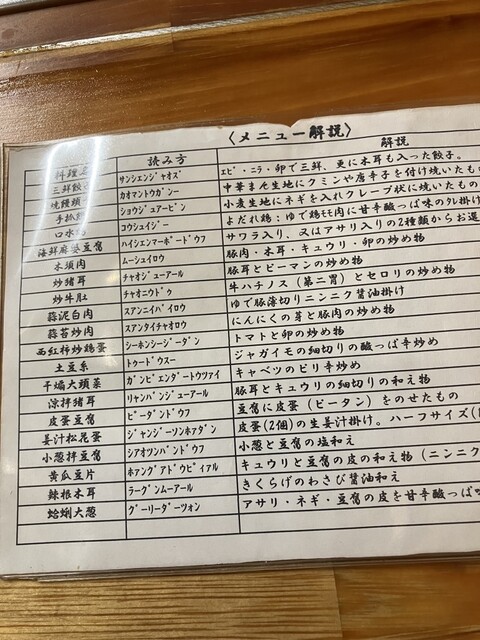 〈メニュー解説〉
料理名 読み方 解説
三鮮餃子 サンシエンジャオズ エビ・ニラ・卵で三鮮、更に木耳も入った餃子。
焼饅頭 カオマントウガンー 中華まん生地にクミンや唐辛子を付け焼いたもの
手抓 ショウジュアービン 小麦生地にネギを入れクレープ状に焼いたもの
口水 コウシュイジー よだれ鶏:ゆで鶏モモ肉に甘辛酸っぱ味のタレ掛け
海鮮麻婆豆腐 ハイシェンマーポードウフ サワラ入り、又はアサリ入りの2種類からお選
木須肉 ムーシュイロウ 豚肉・木耳・キュウリ・卵の炒め物
炒猪耳 チャオジューアール 豚耳とピーマンの炒め物
炒牛肚 チャオニウドゥ 牛ハチノス(第二胃)とセロリの炒め物
蒜泥白肉 スアンニイバイロウ ゆで豚薄切りニンニク醤油掛け
蒜苔炒肉 スアンタイチャオロウ にんにくの芽と豚肉の炒め物
西紅柿炒鶏蛋 シーホンシージーダン トマトと卵の炒め物
土豆糸 トゥードウスー ジャガイモの細切りの酸っぱ辛炒め
干煸大頭菜 ガンビエンダートウツァイ キャベツのピリ辛炒め
涼拌猪耳 リャンバンジューアール 豚耳とキュウリの細切りの和え物
皮蛋豆腐 ピーダンドウフ 豆腐に皮蛋(ピータン)をのせたもの
姜汁松花蛋 ジャンジーソーンホアダン 皮蛋(2個)の生姜汁掛け。ハーフサイズ(
小葱拌豆腐 シアオツンバンドウフ 小葱と豆腐の塩和え
黄瓜豆片 ホアングアドウピィアル キュウリと豆腐の皮の和え物(ニンニク
辣根木耳 ラーグンムーアール きくらげのわさび醤油和え
蛤蜊大葱 グーリーダーツォン アサリ・ネギ・豆腐の皮を甘辛酸っぱ味